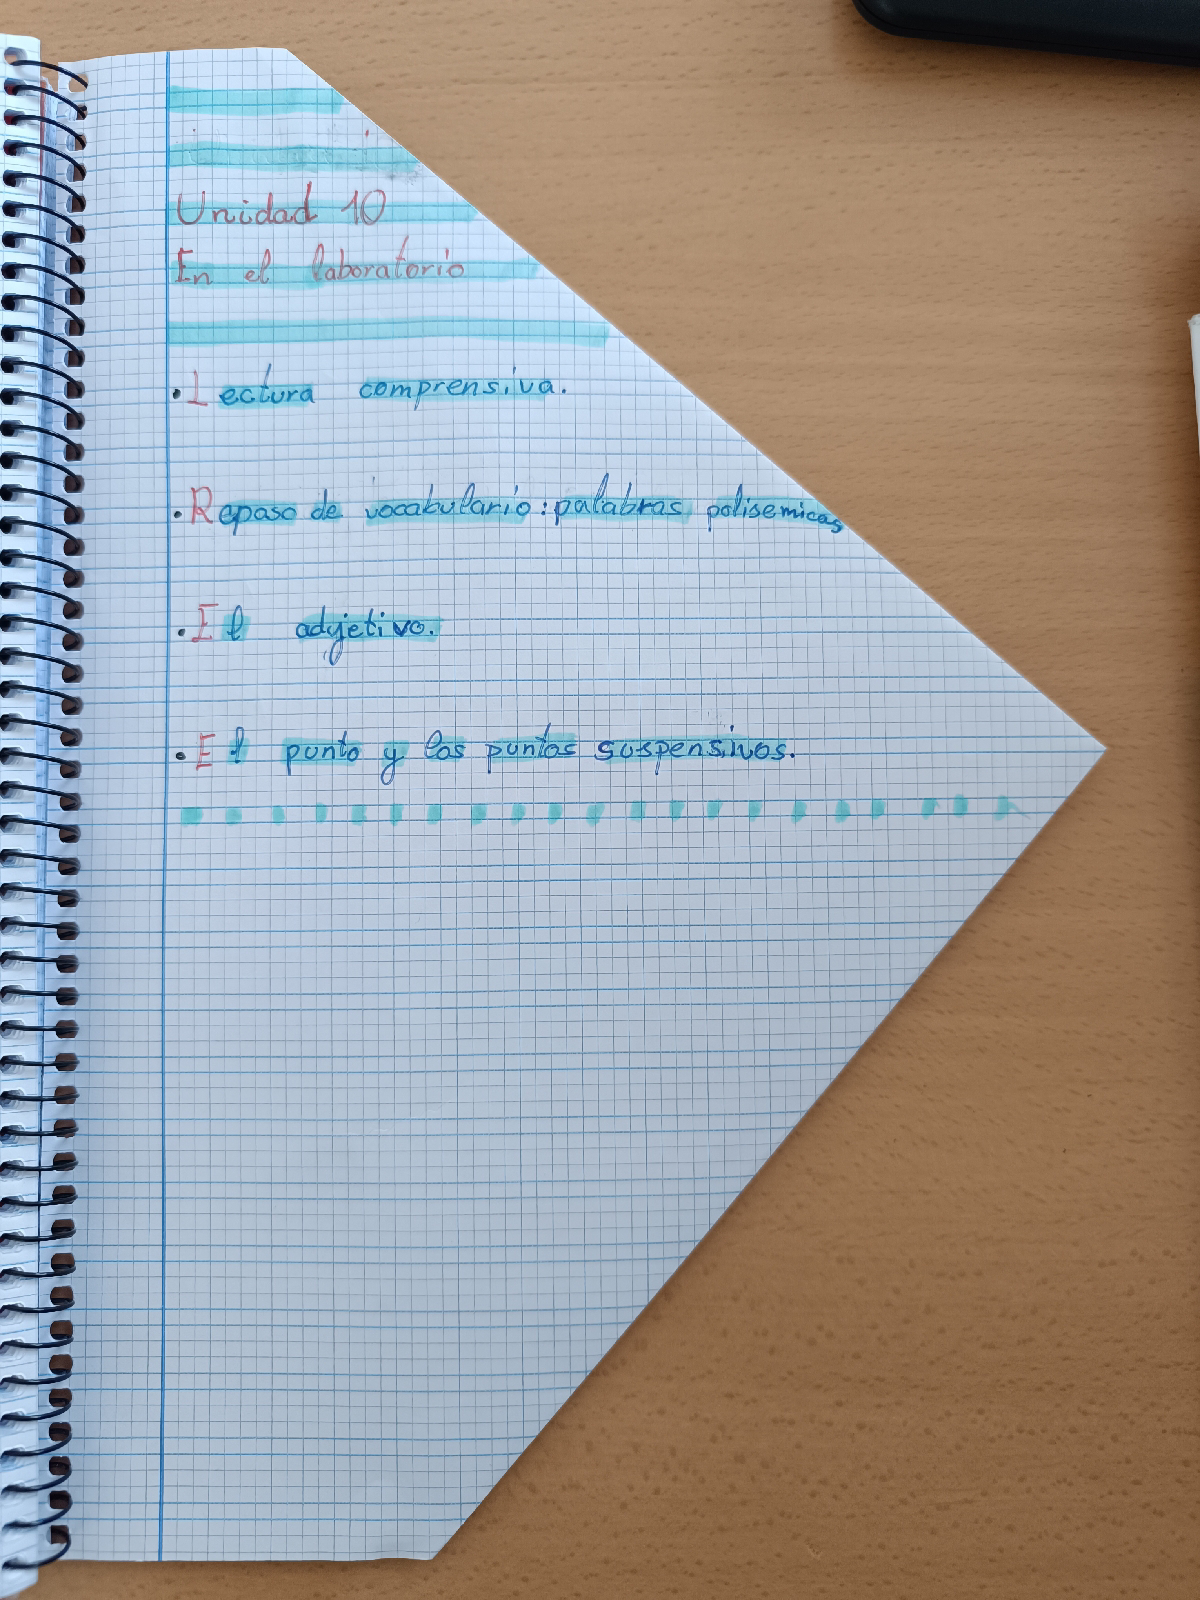 Unidad 10
En el laboratorio
• Lectura comprensiva.
• Repaso de vocabulario: palabras polisemicas
• El adjetivo.
• El punto y los puntos suspensivos.